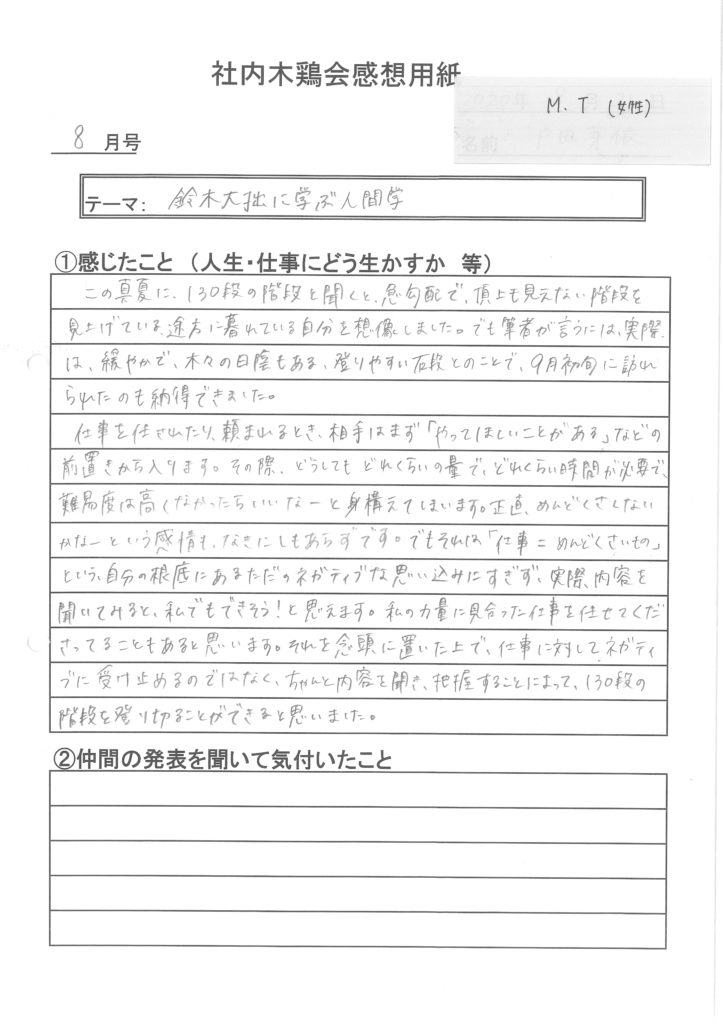 社内木鶏会感想用紙
M.T (女性)
8 月号
名前
テーマ: 鈴木大拙に学ぶ人間学
①感じたこと (人生・仕事にどう生かすか 等)
この真夏に、130段の階段と聞くと、急勾配で、頂上も見えない階段を
見上げている、途方に暮れている自分を想像しました。でも筆者が言うには、実際
は、緩やかで、木々の日陰もある、登りやすい石段とのことで、9月初旬に訪れ
られたのも納得できました。
仕事を任されたり、頼まれるとき、相手はまず「やってほしいことがある」などの
前置きから入ります。その際、どうしても どれくらいの量で、どれくらい時間が必要で、
難易度は高くなかったらいいなーと身構えてしまいます。正直、めんどくさくない
かなーという感情も、なきにしもあらずです。でもそれは「仕事=めんどくさいもの」
という、自分の根底にあるただのネガティブな思い込みにすぎず、実際、内容を
聞いてみると、私でもできそう!と思えます。私の力量に見合った仕事を任せてくだ
さってることもあると思います。それを念頭に置いた上で、仕事に対してネガティ
ブに受け止めるのではなく、ちゃんと内容を聞き、把握することによって、130段の
階段を登り切ることができると思いました。
②仲間の発表を聞いて気付いたこと